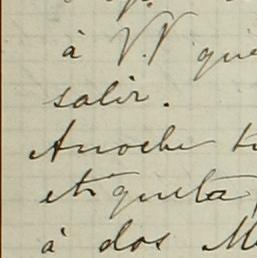 à V.V que
salir.
Anoche
etiqueta,
à dos